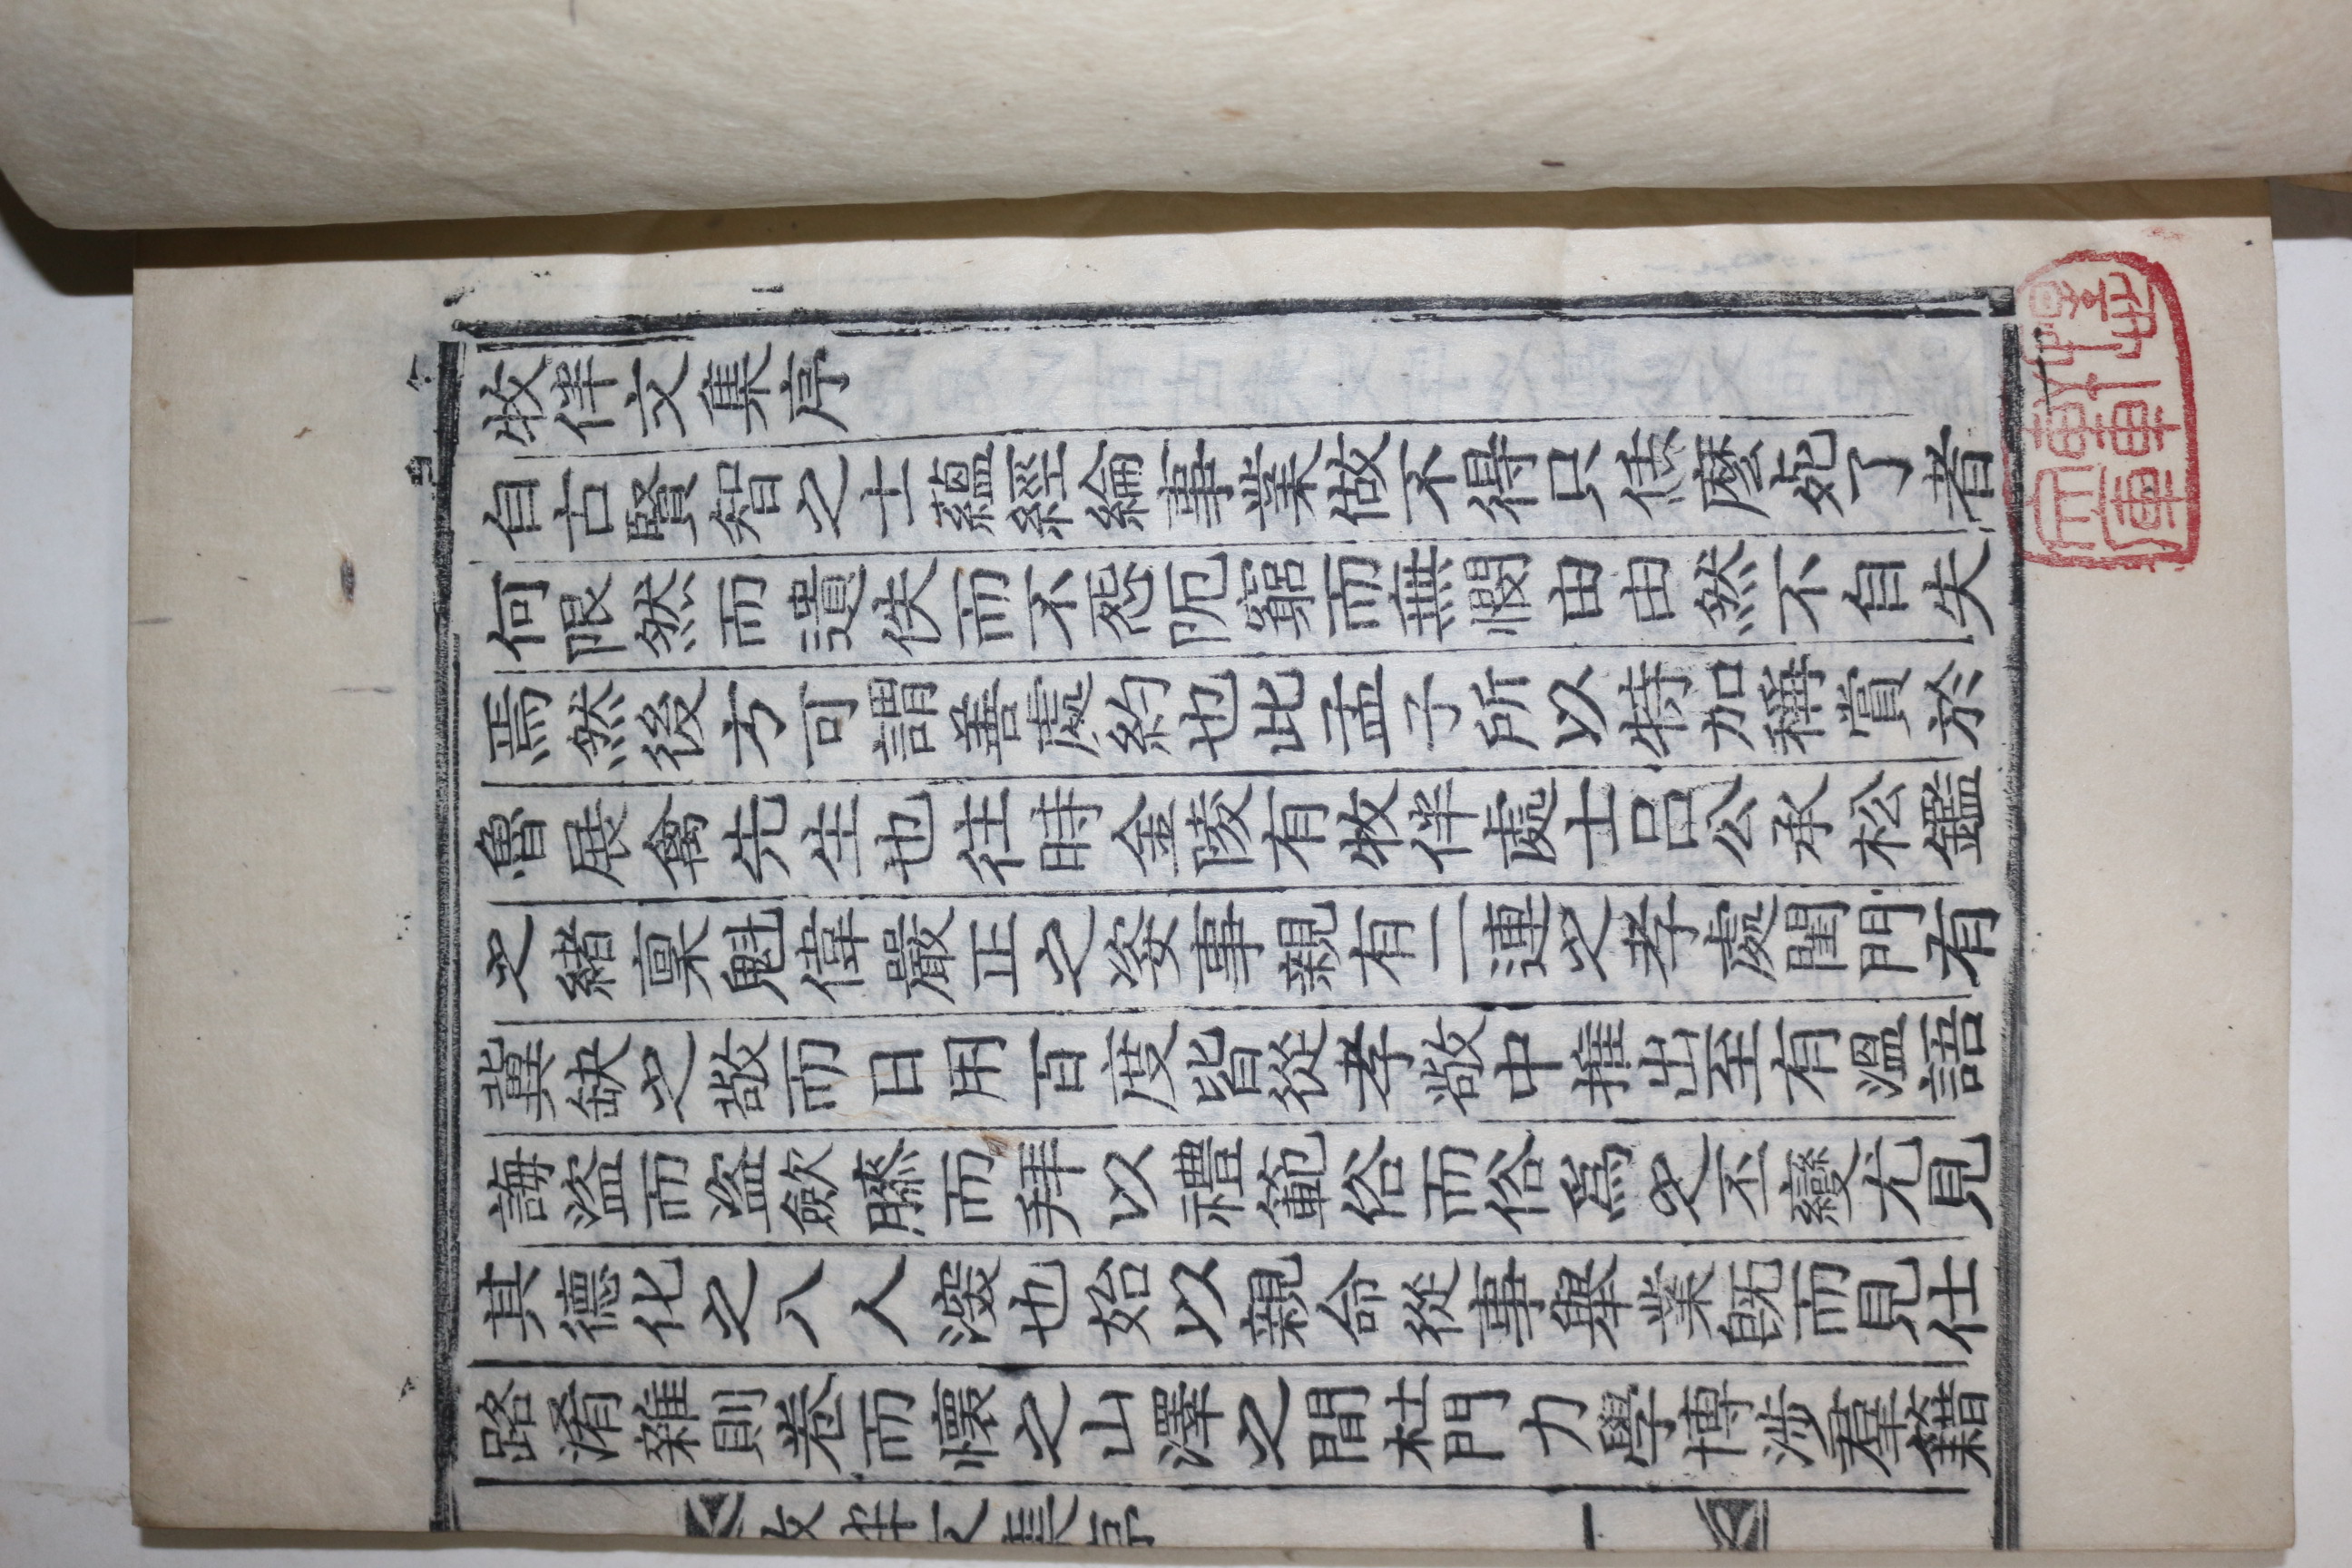 牧伴文集序
自古賢智之士蘊經綸事業做不得只恁麽死了者
何限然而遺佚而不怨阨窮而無憫由由然不自失
焉然後方可謂善處約也此孟子所以特加稱賞於
魯展禽先生也往時金陵有牧伴處士呂公承松鑑
之緖稟魁偉嚴正之姿事親有二連之孝處閨門有
冀缺之敬而日用百度皆從孝敬中推出至有溫語
誨盜而盜歛賻而拜以禮範俗而俗爲之丕變尤見
其德化之入人深也始以親命從事擧業旣而見仕
路淆雜則卷而懷之山澤之間杜門力學博涉羣籍
牧伴文集序 一
軒
庫